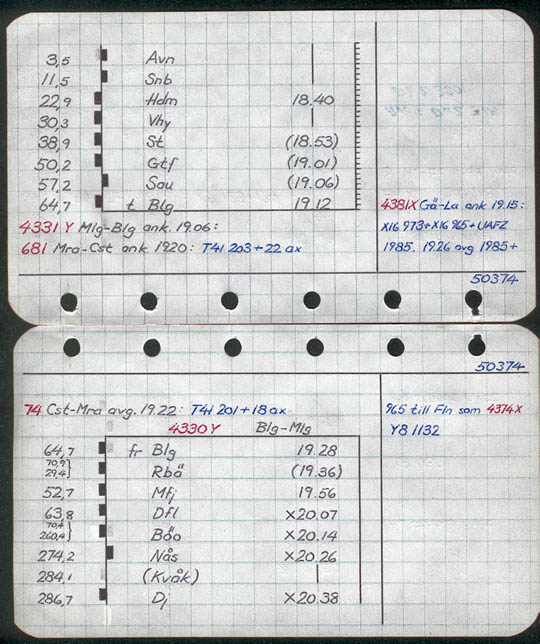 3,5 Avn |
11,5 Snb |
22,9 Hdm 18.40
30,3 Vhy |
38,9 St (18.53)
50,2 Gtf (19.01)
57,2 Sau (19.06)
64,7 t Blg 19.12
4331 Y Mlg-Blg ank. 19.06:
681 Mra-Cst ank. 1920: T41 203+22 ax
4381X Gä-La ank 19.15:
X16 973+X16 965+UAFZ
1985. 19.26 avg 1985+
50374
50374
74 Cst-Mra avg. 19.22: T41 201+18 ax
4330 Y Blg-Mlg
64,7 fr Blg 19.28
70,9 }
29,4 } Rbä (19.36)
52,7 Mfj 19.56
63,8 Dfl ×20.07
70,4 }
260,4 } Böo ×20.14
274,2 Nås ×20.26
284,1 (Kvåk) |
286,7 Dj ×20.38
965 till Fln som 4374X
Y8 1132